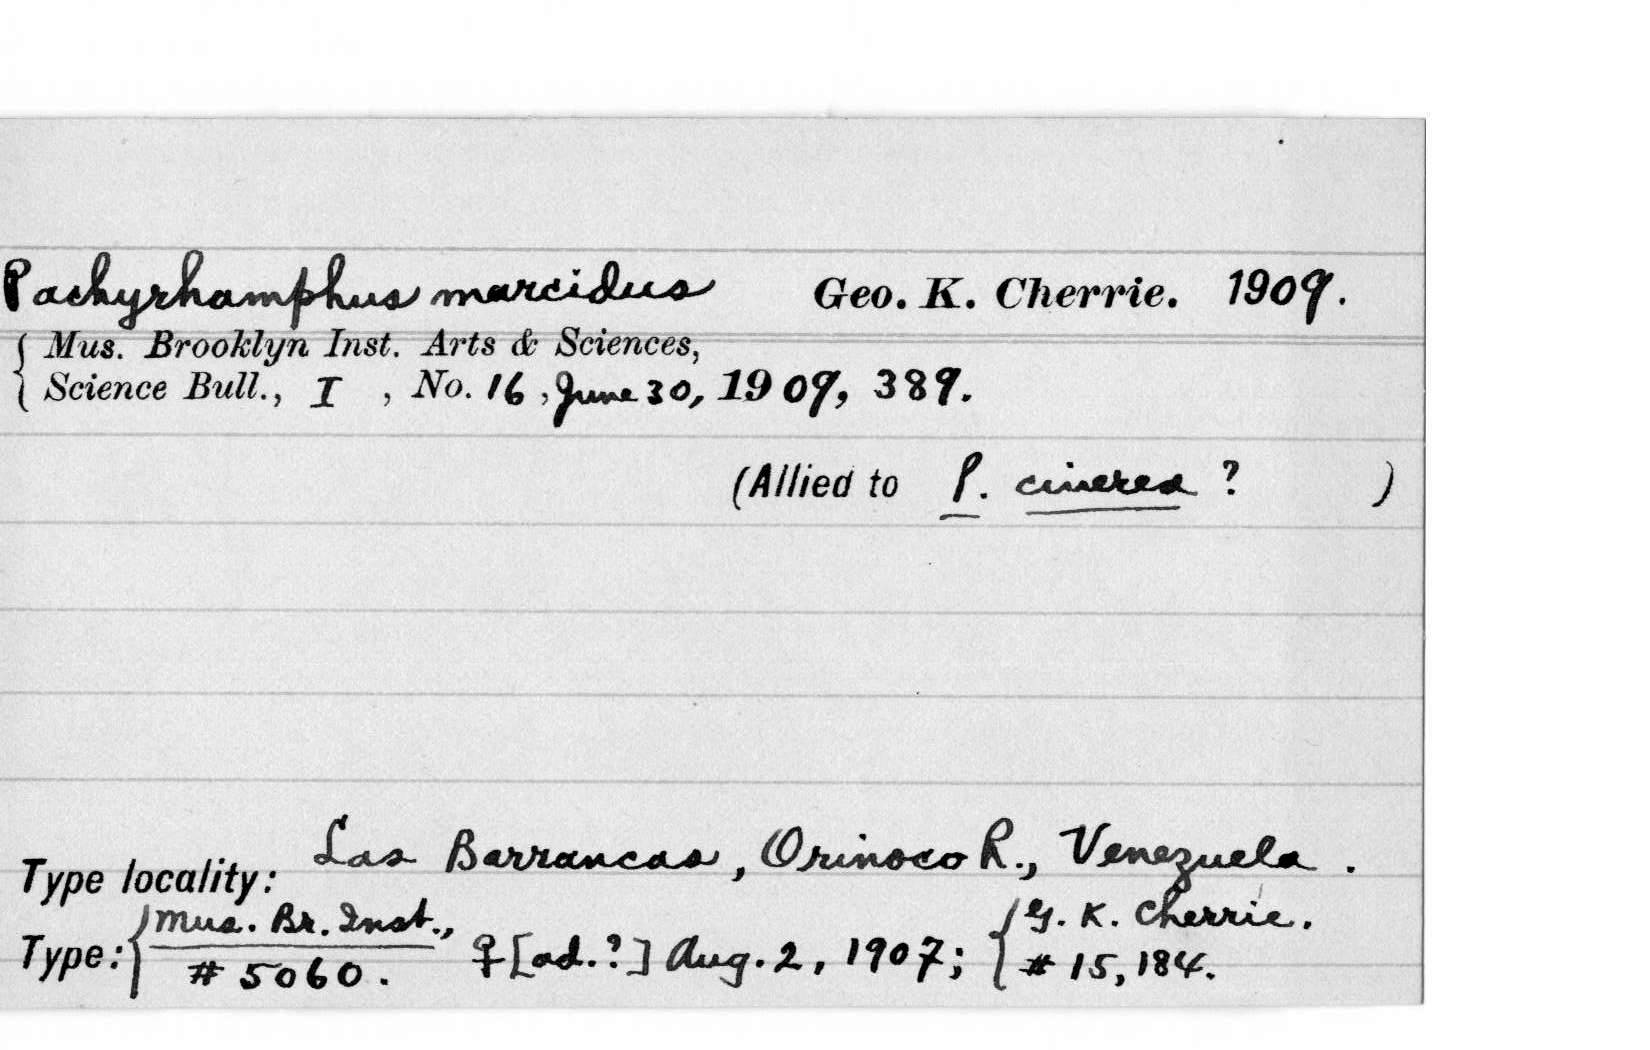 Pachyrhamphus marcidus Geo. K. Cherrie. 1909.
{ Mus. Brooklyn Inst. Arts & Sciences,
Science Bull., I , No. 16, June 30, 1909, 389.
(Allied to P. cinerea ? )
Type locality: Las Barrancas, Orinoco R., Venezuela.
Type: { Mus. Br. Inst., # 5060. ♀ [ad.?] Aug. 2, 1907; { G. K. Cherrie. # 15,184.